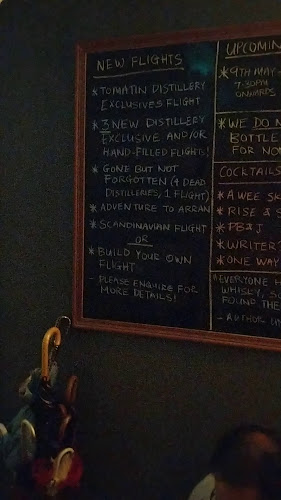 NEW FLIGHTS
* TOMATIN DISTILLERY
EXCLUSIVES FLIGHT
* 3 NEW DISTILLERY
EXCLUSIVE AND/OR
HAND-FILLED FLIGHTS!
* GONE BUT NOT
FORGOTTEN (4 DEAD
DISTILLERIES, 1 FLIGHT)
* ADVENTURE TO ARRAN
* SCANDINAVIAN FLIGHT
OR
* BUILD YOUR OWN
FLIGHT
- PLEASE ENQUIRE FOR
MORE DETAILS!
UPCOMIN
* 9TH MAY
7:30PM
ONWARDS
* WE DO N
BOTTLE
FOR NO
COCKTAILS
* A WEE SK
* RISE & S
* PB & J
* WRITER'
* ONE WAY
"EVERYONE H
WHISKY, SO
FOUND THE
- AUTHOR UN